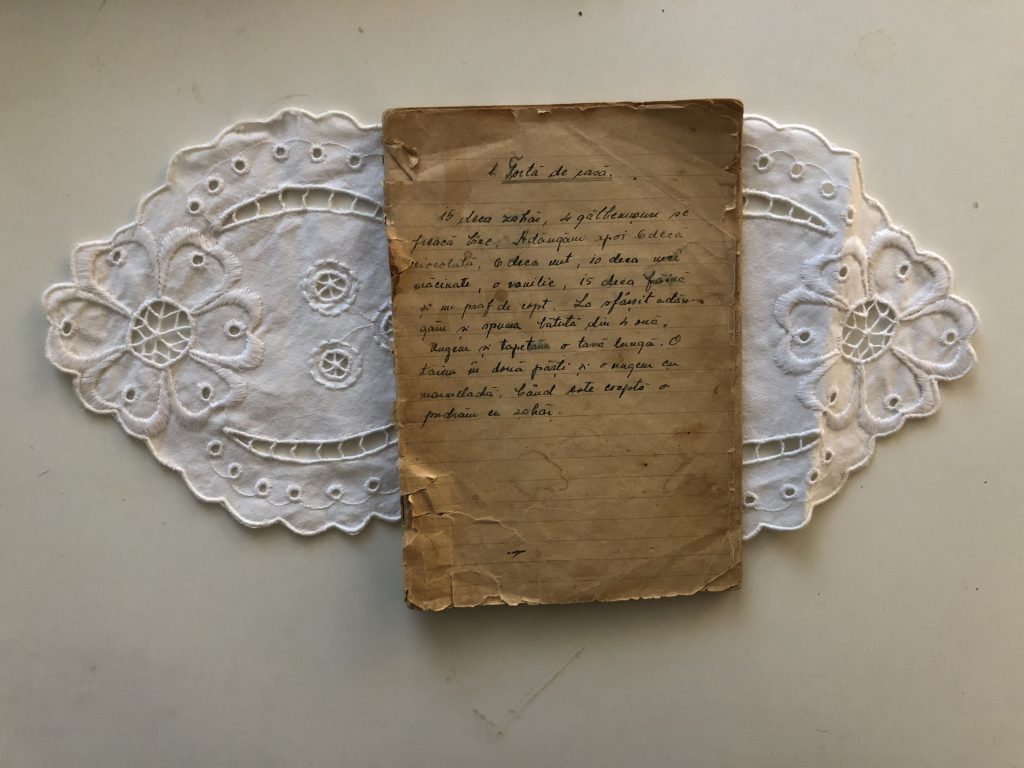 1. Tortă de casă.
15 deca zahăr, 4 gălbenușuri se
freacă bine. Adăugăm apoi 6 deca
ciocolată, 6 deca unt, 10 deca nuci
măcinate, o vanilie, 15 deca făină
și un praf de copt. La sfârșit adău-
găm și spuma bătută din 4 ouă.
Ungem și tapetăm o tavă lungă. O
tăiem în două părți și o ungem cu
marmeladă. Când este coaptă o
pudrăm cu zahăr.